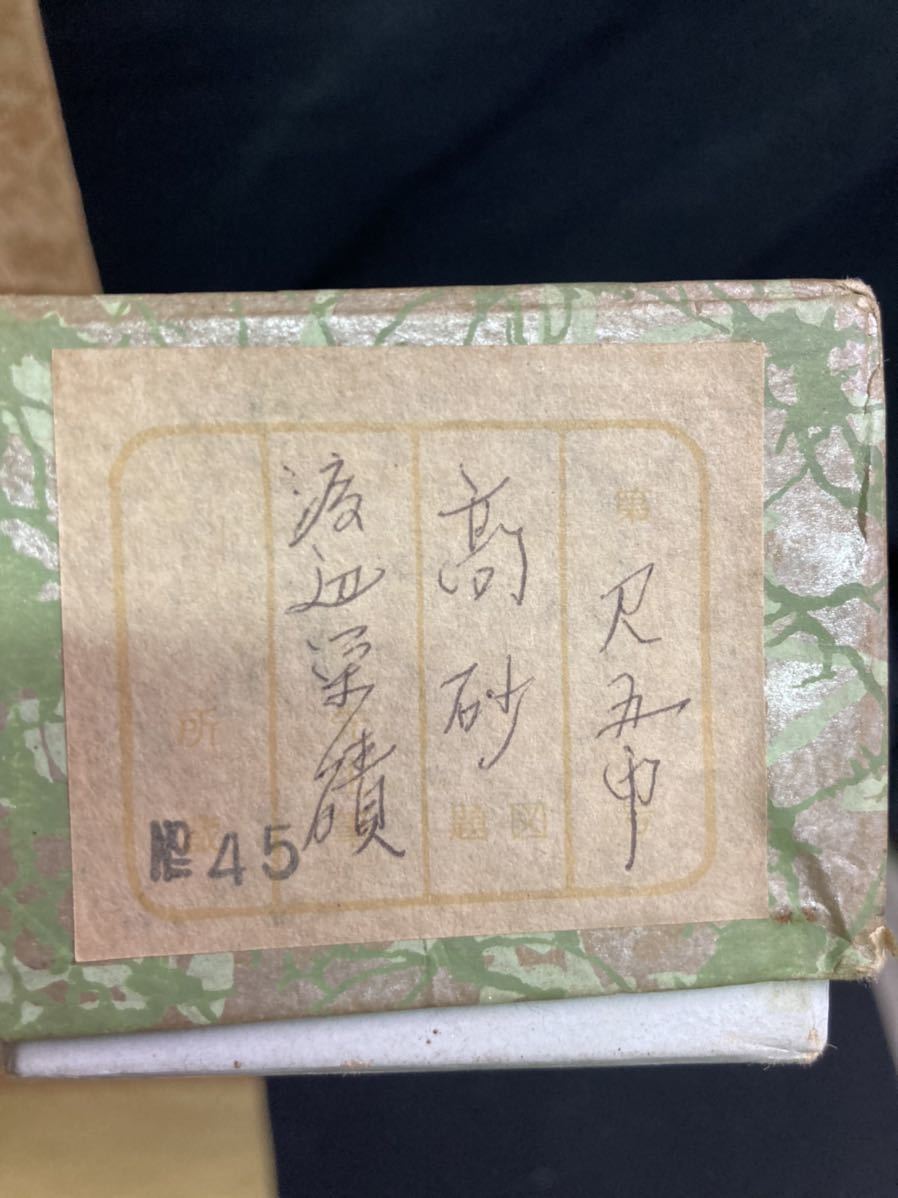 第
尺五巾
高砂
図題
渡辺栄
所蔵
№45